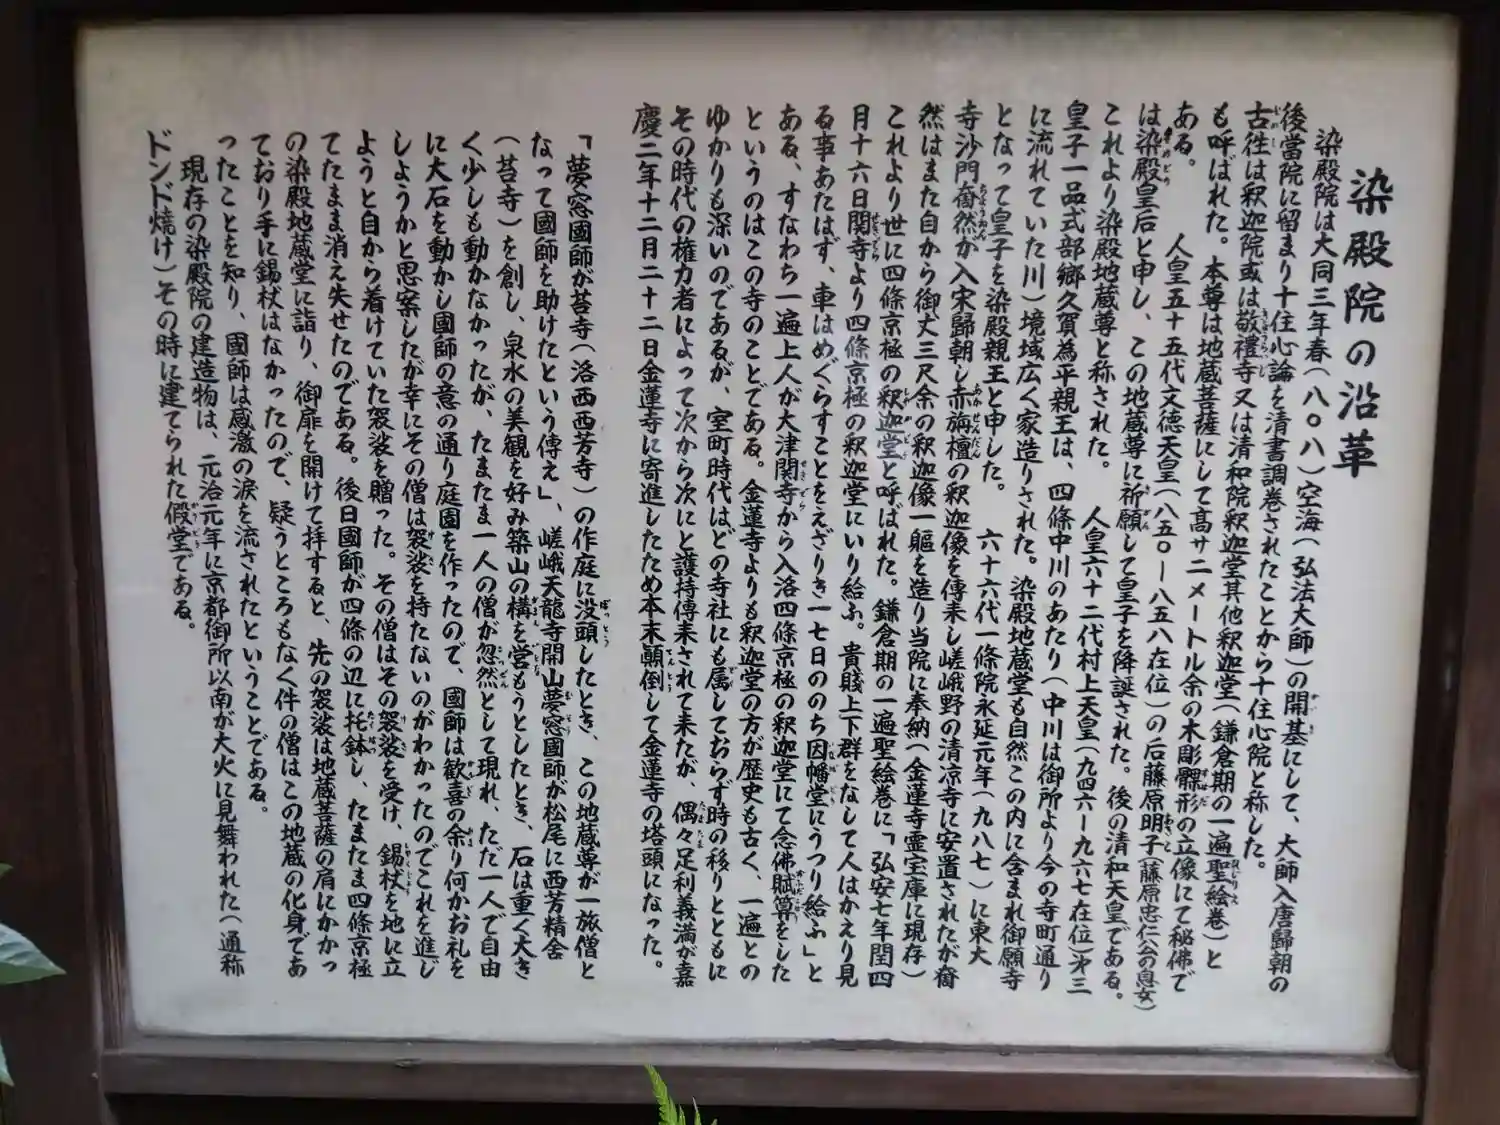 染殿院の沿革
染殿院は大同三年春（八〇八）空海（弘法大師）の開基にして、大師入唐歸朝の
後當院に留まり十住心論を清書調巻されたことから十住心院と称した。
古徃は釈迦院或は敬禮寺又は清和院釈迦堂其他釈迦堂（鎌倉期の一遍聖絵巻）と
も呼ばれた。本尊は地蔵菩薩にして高サ二メートル余の木彫髁形の立像にて秘佛で
ある。　人皇五十五代文徳天皇（八五〇ー八五八在位）の后藤原明子（藤原忠仁公の息女）
は染殿皇后と申し、この地蔵尊に祈願して皇子を降誕された。後の清和天皇である。
これより染殿地蔵尊と称された。　人皇六十二代村上天皇（九四六ー九六七在位）㐧三
皇子一品式部郷久賀為平親王は、四條中川のあたり（中川は御所より今の寺町通り
に流れていた川）境域広く家造りされた。染殿地蔵堂も自然この内に含まれ御願寺
となって皇子を染殿親王と申した。　六十六代一條院永延元年（九八七）に東大
寺沙門奝然が入宋歸朝し赤旃檀の釈迦像を傳来し嵯峨野の清凉寺に安置されたが奝
然はまた自から御丈三尺余の釈迦像一軀を造り当院に奉納（金蓮寺霊宝庫に現存）
これより世に四條京極の釈迦堂と呼ばれた。鎌倉期の一遍聖絵巻に「弘安七年閏四
月十六日関寺より四條京極の釈迦堂にいり給ふ。貴賤上下群をなして人はかえり見
る事あたはず、車はめぐらすことをえざりき一七日ののち因幡堂にうつり給ふ」と
ある、すなわち一遍上人が大津関寺から入洛四條京極の釈迦堂にて念佛賦算をした
というのはこの寺のことである。金蓮寺よりも釈迦堂の方が歴史も古く、一遍との
ゆかりも深いのであるが、室町時代はどの寺社にも属しておらず時の移りとともに
その時代の権力者によって次から次にと護持傳来されて来たが、偶々足利義満が嘉
慶二年十二月二十二日金蓮寺に寄進したため本末顚倒して金蓮寺の塔頭になった。
「夢窓國師が苔寺（洛西西芳寺）の作庭に没頭したとき、この地蔵尊が一旅僧と
なって國師を助けたという傳え」、嵯峨天龍寺開山夢窓國師が松尾に西芳精舎
（苔寺）を創し、泉水の美観を好み築山の構を営もうとしたとき、石は重く大き
く少しも動かなかったが、たまたま一人の僧が忽然として現れ、ただ一人で自由
に大石を動かし國師の意の通り庭園を作ったので、國師は歓喜の余り何かお礼を
しようかと思案したが幸にその僧は袈裟を持たないのがわかったのでこれを進じ
ようと自から着けていた袈裟を贈った。その僧はその袈裟を受け、錫杖を地に立
てたまま消え失せたのである。後日國師が四條の辺に托鉢し、たまたま四條京極
の染殿地蔵堂に詣り、御扉を開けて拝すると、先の袈裟は地蔵菩薩の肩にかかっ
ており手に錫杖はなかったので、疑うところもなく件の僧はこの地蔵の化身であ
ったことを知り、國師は感激の涙を流されたということである。
現存の染殿院の建造物は、元治元年に京都御所以南が大火に見舞われた（通称
ドンド焼け）その時に建てられた假堂である。